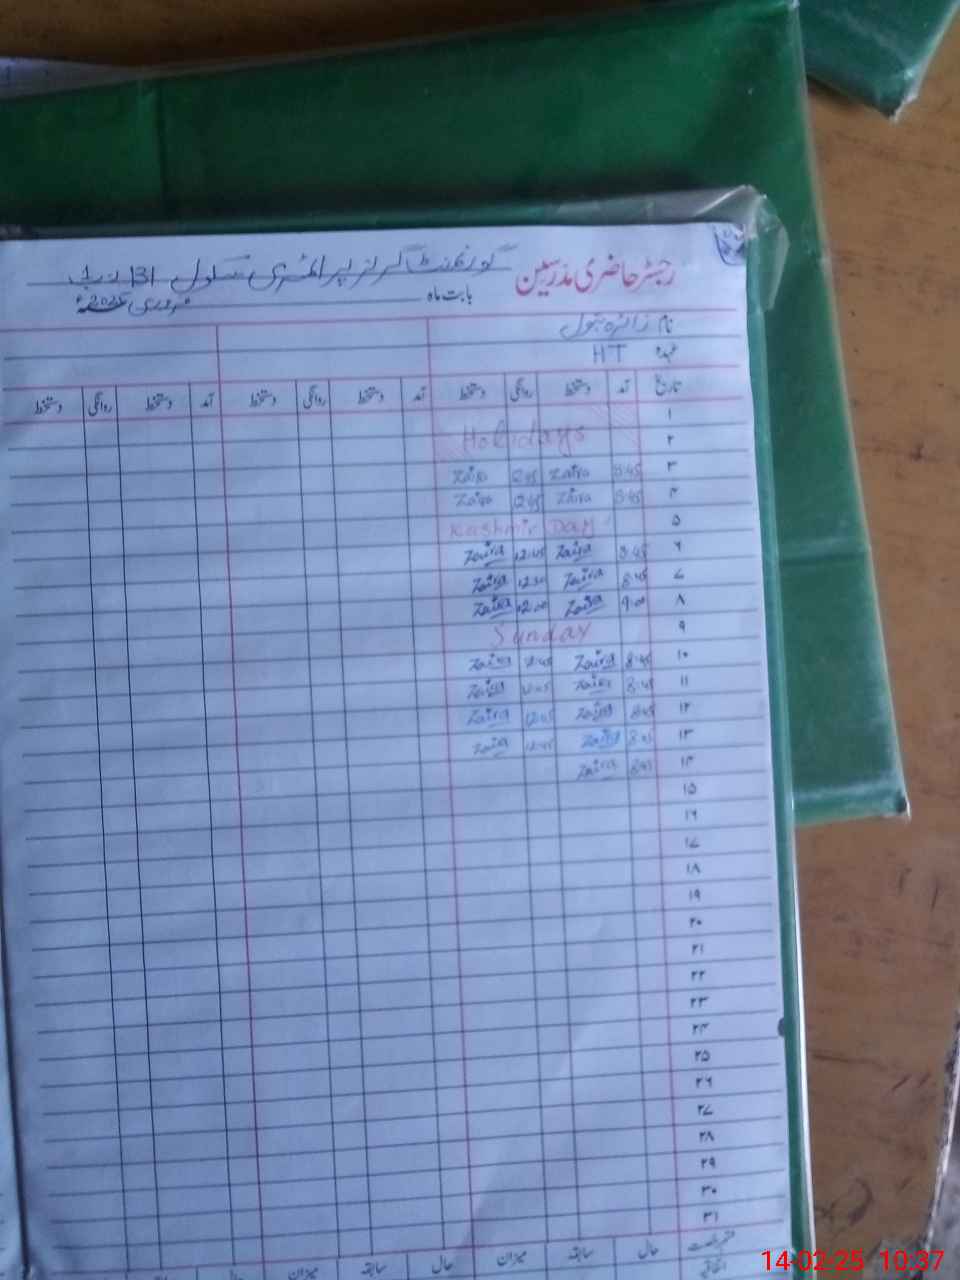 رجسٹر حاضری مدرسین گورنمنٹ گرلز پرائمری سکول
بابت ماہ فروری
نام زائرہ بتول
عہدہ HT
تاریخ آمد دستخط روانگی دستخط آمد دستخط روانگی دستخط آمد دستخط روانگی دستخط
۱
۲ Holidays
۳ 8:45 Zaira 12:45 Zaira
۴ 8:45 Zaira 12:45 Zaira
۵ Kashmir Day
۶ 8:45 Zaira 12:45 Zaira
۷ 8:45 Zaira 12:30 Zaira
۸ 9:00 Zaira 12:00 Zaira
۹ Sunday
۱۰ 8:45 Zaira 12:45 Zaira
۱۱ 8:45 Zaira 12:45 Zaira
۱۲ 8:45 Zaira 12:45 Zaira
۱۳ 8:45 Zaira 12:45 Zaira
۱۴ 8:45 Zaira
۱۵
۱۶
۱۷
۱۸
۱۹
۲۰
۲۱
۲۲
۲۳
۲۴
۲۵
۲۶
۲۷
۲۸
۲۹
۳۰
۳۱
حال سابقہ میزان حال سابقہ میزان حال سابقہ
14-02-25 10:37